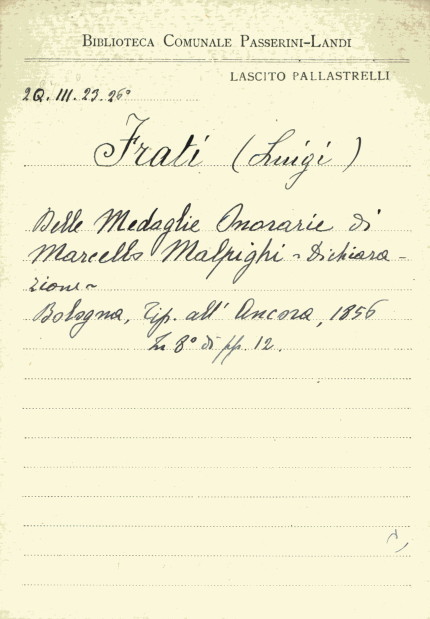 BIBLIOTECA COMUNALE PASSERINI-LANDI
LASCITO PALLASTRELLI
2Q.III.23.26°
Frati (Luigi)
Delle Medaglie Onorarie di
Marcello Malpighi - Dichiara-
zione -
Bologna, Tip. all' Ancora, 1856
In 8° di pp. 12.